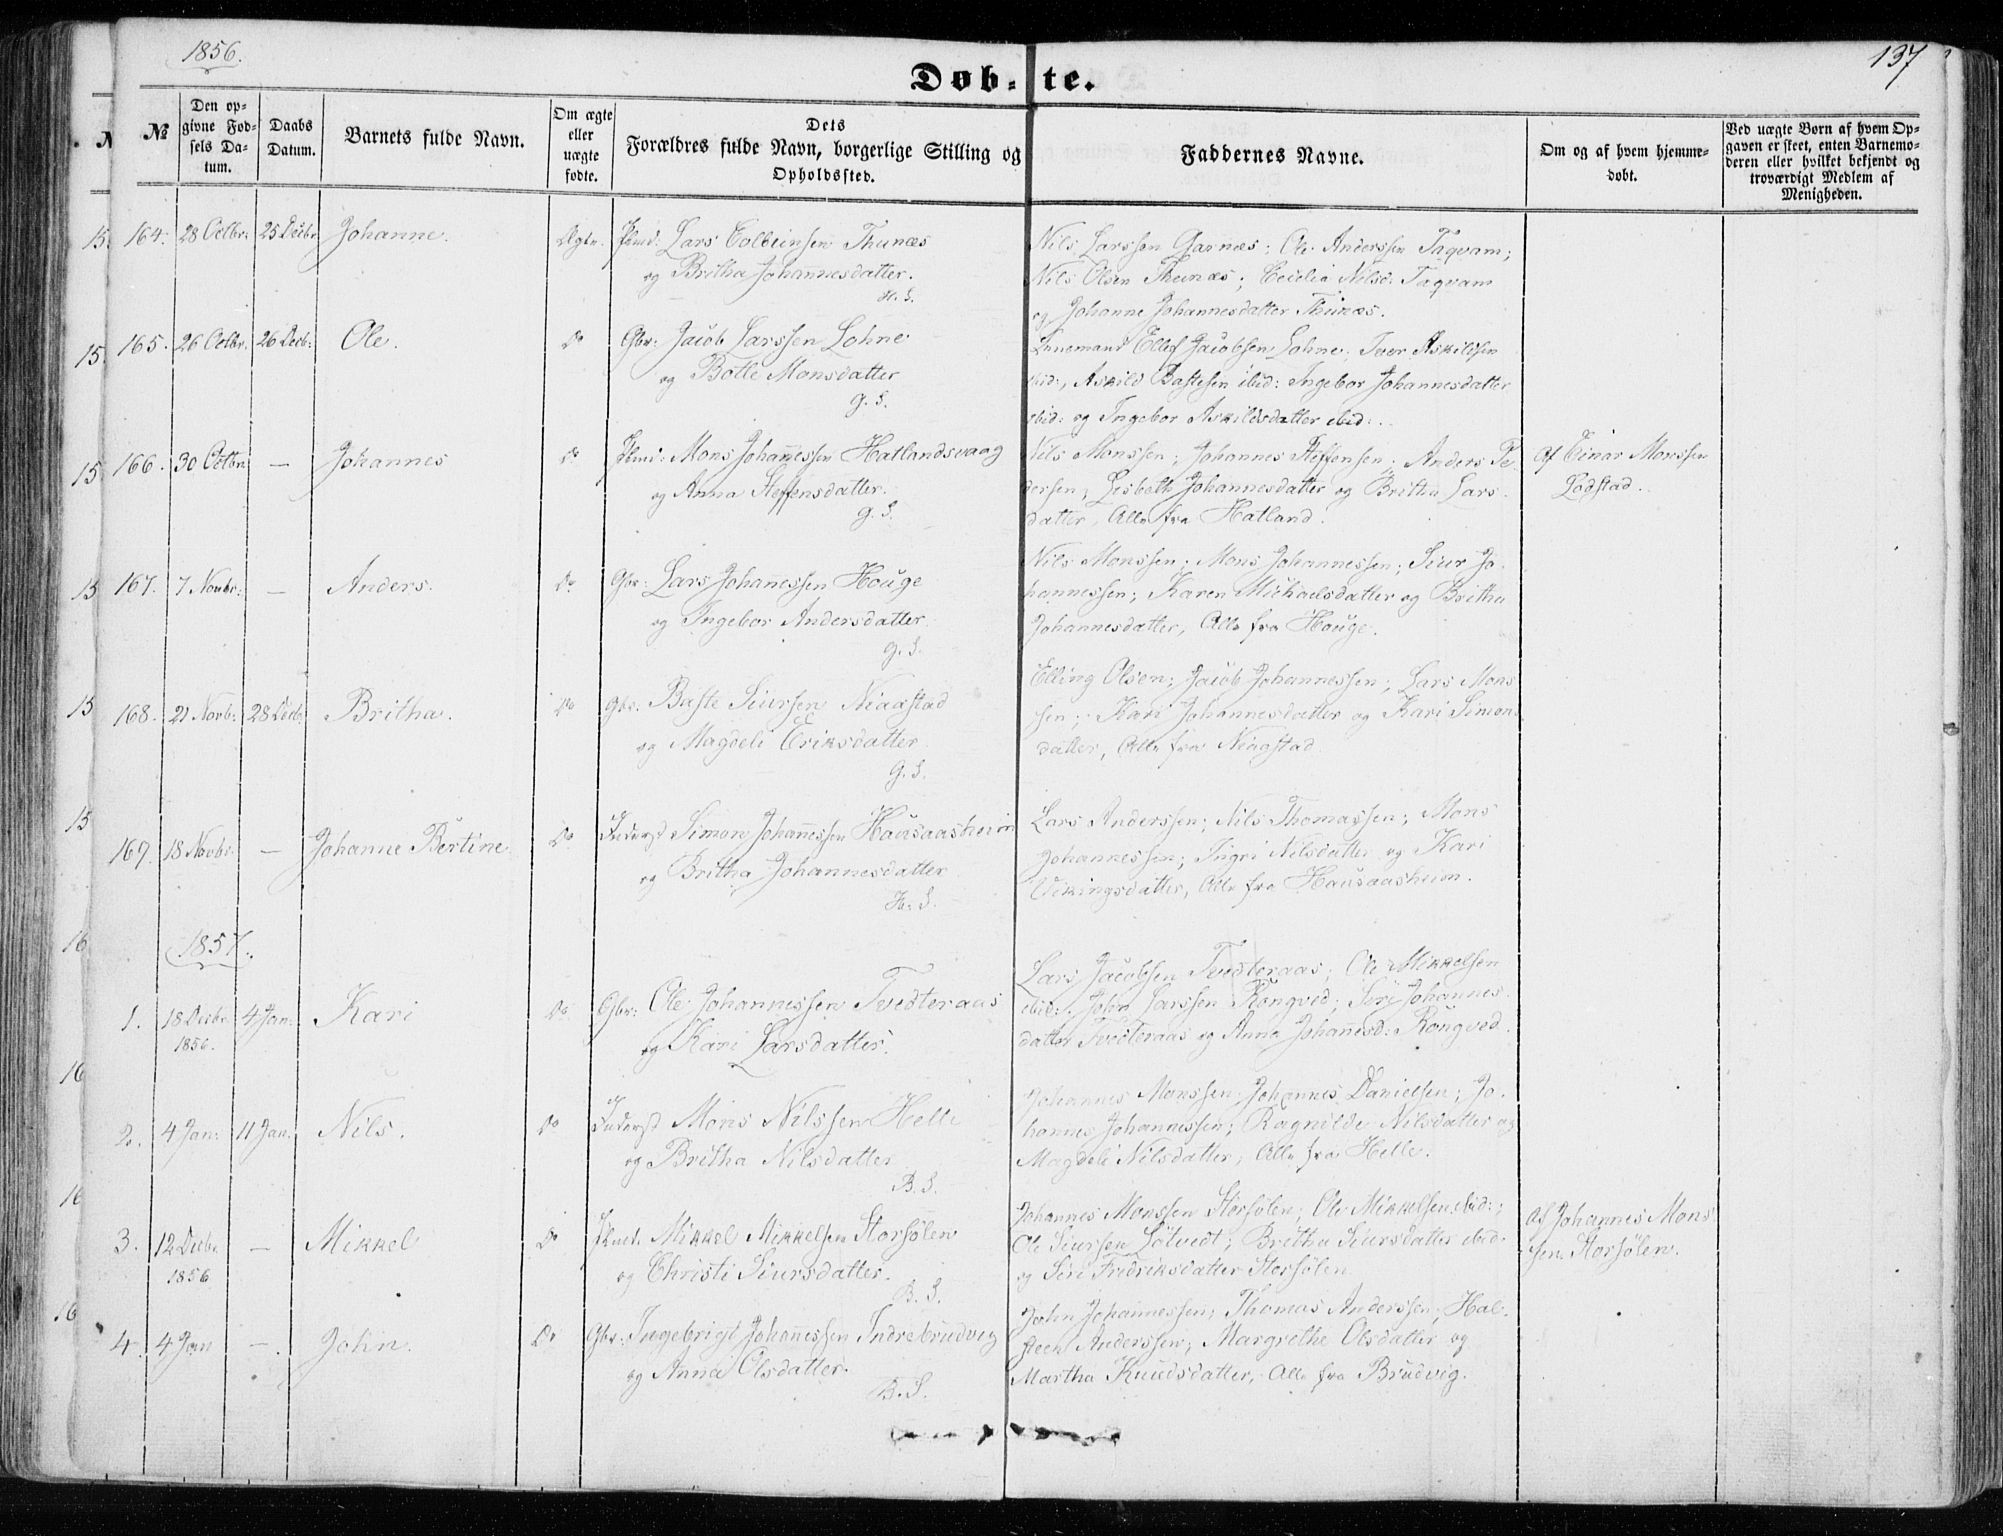 1856.
137
Døb-te.
№
Den op-
givne Fød-
sels Da-
tum.
Daabs
Datum.
Barnets fulde Navn.
Om ægte
eller
uægte
fødte.
Dets
Forældres fulde Navn, borgerlige Stilling og
Opholdssted.
Faddernes Navne.
Om og af hvem hjemme-
døbt.
Ved uægte Børn af hvem Op-
gaven er skeet, enten Barnemo-
deren eller hvilket bekjendt og
troværdigt Medlem af
Menigheden.
164. 28 Octbr: 25 Decbr. Johanne. Ægte. Lars Colbeinsen Thunæs
og Britha Johannesdatter.
H. S.
Nils Larssen Garnæs; Ole Anderssen Taqvam;
Nils Olsen Thunæs; Cecilia Nilsd: Taqvam
og Johanne Johannesdatter Thunæs.
165. 26 Octbr. 26 Decb: Ole. Do Gbr: Jacob Larssen Lohne
og Botle Monsdatter
G. S.
Lænsmand Ellef Jacobsen Lohne; Iver Askildsen
ibid:, Askild Bastesen ibid: Ingebor Johannesdatter
ibid: og Ingebor Askildsdatter ibid:.
166. 30 Octbr. — Johannes Do Mons Johannessen Hatlandsvaag
og Anna Steffensdatter.
G. S.
Nils Monssen; Johannes Steffensen; Anders Pe-
dersen; Lisbeth Johannesdatter og Britha Lars-
datter, Alle fra Hatland.
Af Einar Monssen
Lodstad.
167. 7 Novbr: — Anders. Do Gbr: Lars Johannessen Houge
og Ingebor Andersdatter.
G. S.
Nils Monssen; Mons Johannessen; Siur Jo-
hannessen; Karen Michaelsdatter og Britha
Johannesdatter, Alle fra Houge.
168. 21 Novb: 28 Decb. Britha. Do Gbr. Baste Siursen Niaastad
og Magdeli Eriksdatter
G. S.
Elling Olsen; Jacob Johannessen; Lars Mons-
sen; Kari Johannesdatter og Kari Simons-
datter, Alle fra Niaastad.
167. 18 Novbr. — Johanne Bertine Do Inderst Simon Johannessen Hausaasheim
og Britha Johannesdatter
H. S.
Lars Anderssen; Nils Thomassen; Mons
Johannessen; Ingri Nilsdatter og Kari
Vikingsdatter, Alle fra Hausaasheim.
1857.
1. 18 Decbr. 4 Jan: Kari Do Gbr: Ole Johannessen Tvedteraas
1856.
og Kari Larsdatter.
Lars Jacobsen Tvedteraas; Ole Mikkelsen
ibid:. John Larssen Rongved; Siri Johannes-
datter Tvedteraas og Anna Johannesd: Rongved.
2. 4 Jan: 11 Jan: Nils. Do Inderst Mons Nilssen Helle
og Britha Nilsdatter
B. S.
Johannes Monssen; Johannes Danielsen; Jo-
hannes Johannessen; Ragnilde Nilsdatter og
Magdeli Nilsdatter, Alle fra Helle.
3. 12 Decbr. — Mikkel Do Mikkel Mikkelsen Storsølen
1856
og Christi Siursdatter.
B. S.
Johannes Monssen Storsølen; Ole Mikkelsen ibid:;
Ole Siursen Søtvedt; Britha Siursdatter ibid:
og Siri Fredriksdatter Storsølen
Af Johannes Mons-
sen Storsølen.
4. 4 Jan — John. Do Gbr: Ingebrigt Johannessen Indrebrudvig
og Anna Olsdatter.
B. S.
John Johannessen; Thomas Anderssen; Hal-
steen Anderssen; Margrethe Olsdatter og
Martha Knudsdatter, Alle fra Brudvig.